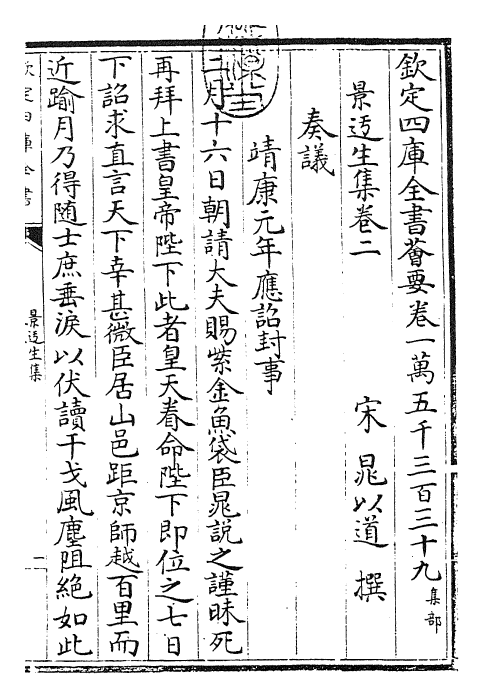 欽定四庫全書薈要卷一萬五千三百三十九集部
景迃生集卷二 宋 晁以道 撰
奏議
靖康元年應詔封事
二月十六日朝請大夫賜紫金魚袋臣晁說之謹昧死
再拜上書皇帝陛下此者皇天眷命陛下即位之七日
下詔求直言天下幸甚微臣居山邑距京師越百里而
近踰月乃得随士庶垂淚以伏讀干戈風塵阻絕如此
欽定四庫全書
景迃生集
一